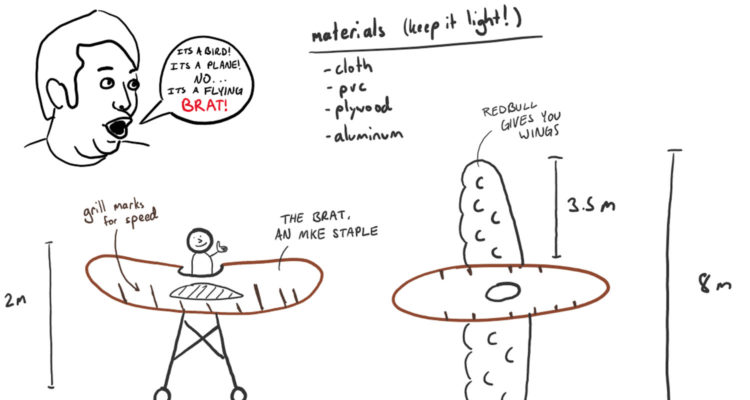 ITS A BIRD!
ITS A PLANE!
NO...
ITS A FLYING
BRAT!
materials (keep it light!)
- cloth
- pvc
- plywood
- aluminum
REDBULL
GIVES YOU
WINGS
3.5 m
8 m
grill marks
for speed
THE BRAT,
AN MKE STAPLE
2m